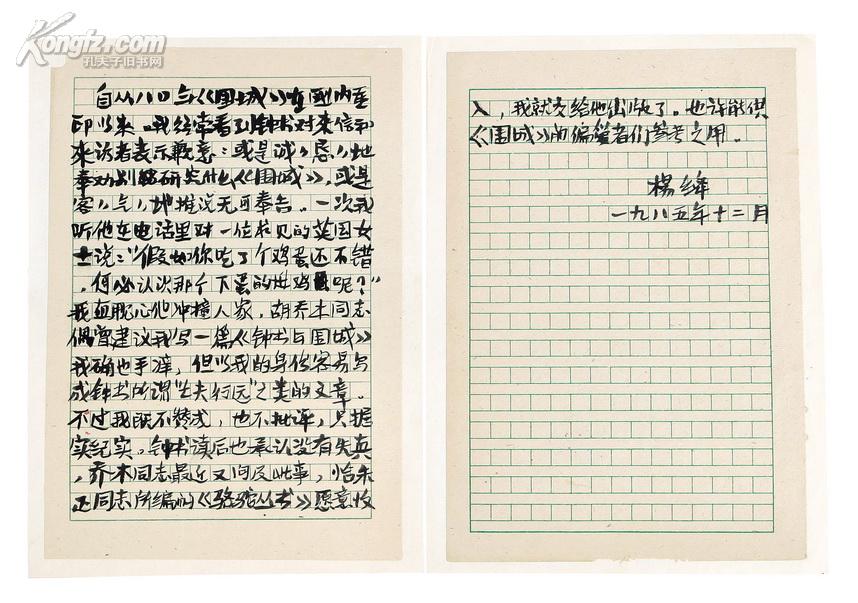 Kongfz.com
孔夫子旧书网
自从八〇年《围城》在国内重
印以来,我经常看到钟书对来信和
来访者表示歉意:或是诚〃恳〃地
奉劝别研究什么《围城》,或是
客〃气〃地推说无可奉告。一次我
听他在电话里对一位求见的英国女
士说:“假如你吃了个鸡蛋还不错
,何必认识那个下蛋的母鸡呢?”
我直耽心他冲撞人家,胡乔木同志
偶曾建议我写一篇《钟书与围城》
我确也手痒,但以我的身份容易写
成钟书所谓“亡夫行述”之类的文章。
不过我既不赞成,也不批评,只据
实纪实。钟书读后也承认没有失真
,乔木同志最近又问及此事,恰朱
正同志所编的《骆驼丛书》愿意收
入,我就交给他出版了。也许能供
《围城》的偏爱者们参考之用。
杨绛
一九八五年十二月